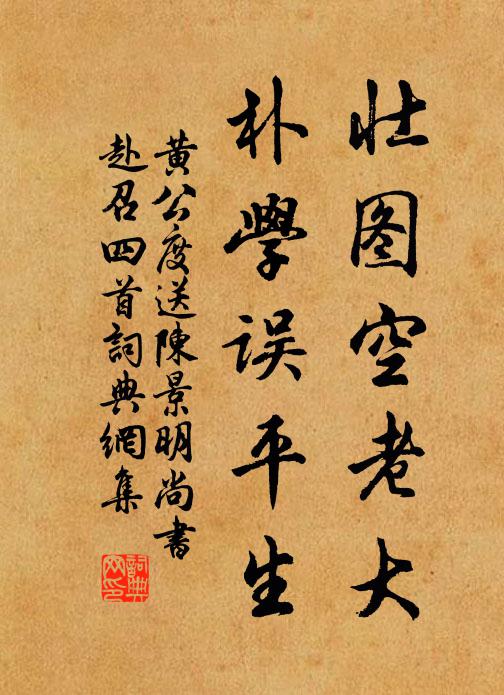 壮图空老大
朴學误平生
黄公度送陳景明尚書
赴召四首詞典網集
詞典网印